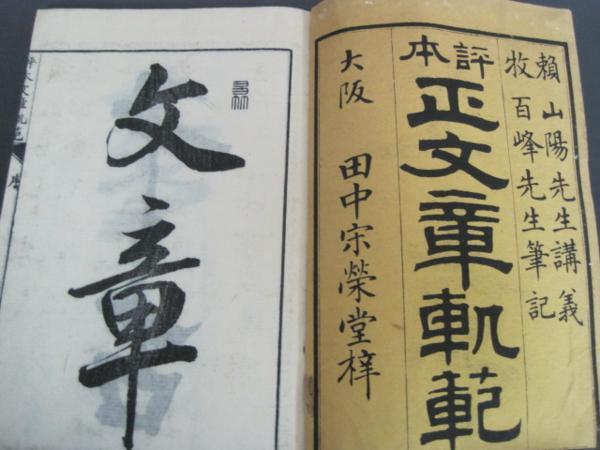 賴山陽先生講義
牧百峰先生筆記
評本
正文章軌範
大阪 田中宋榮堂梓
文章